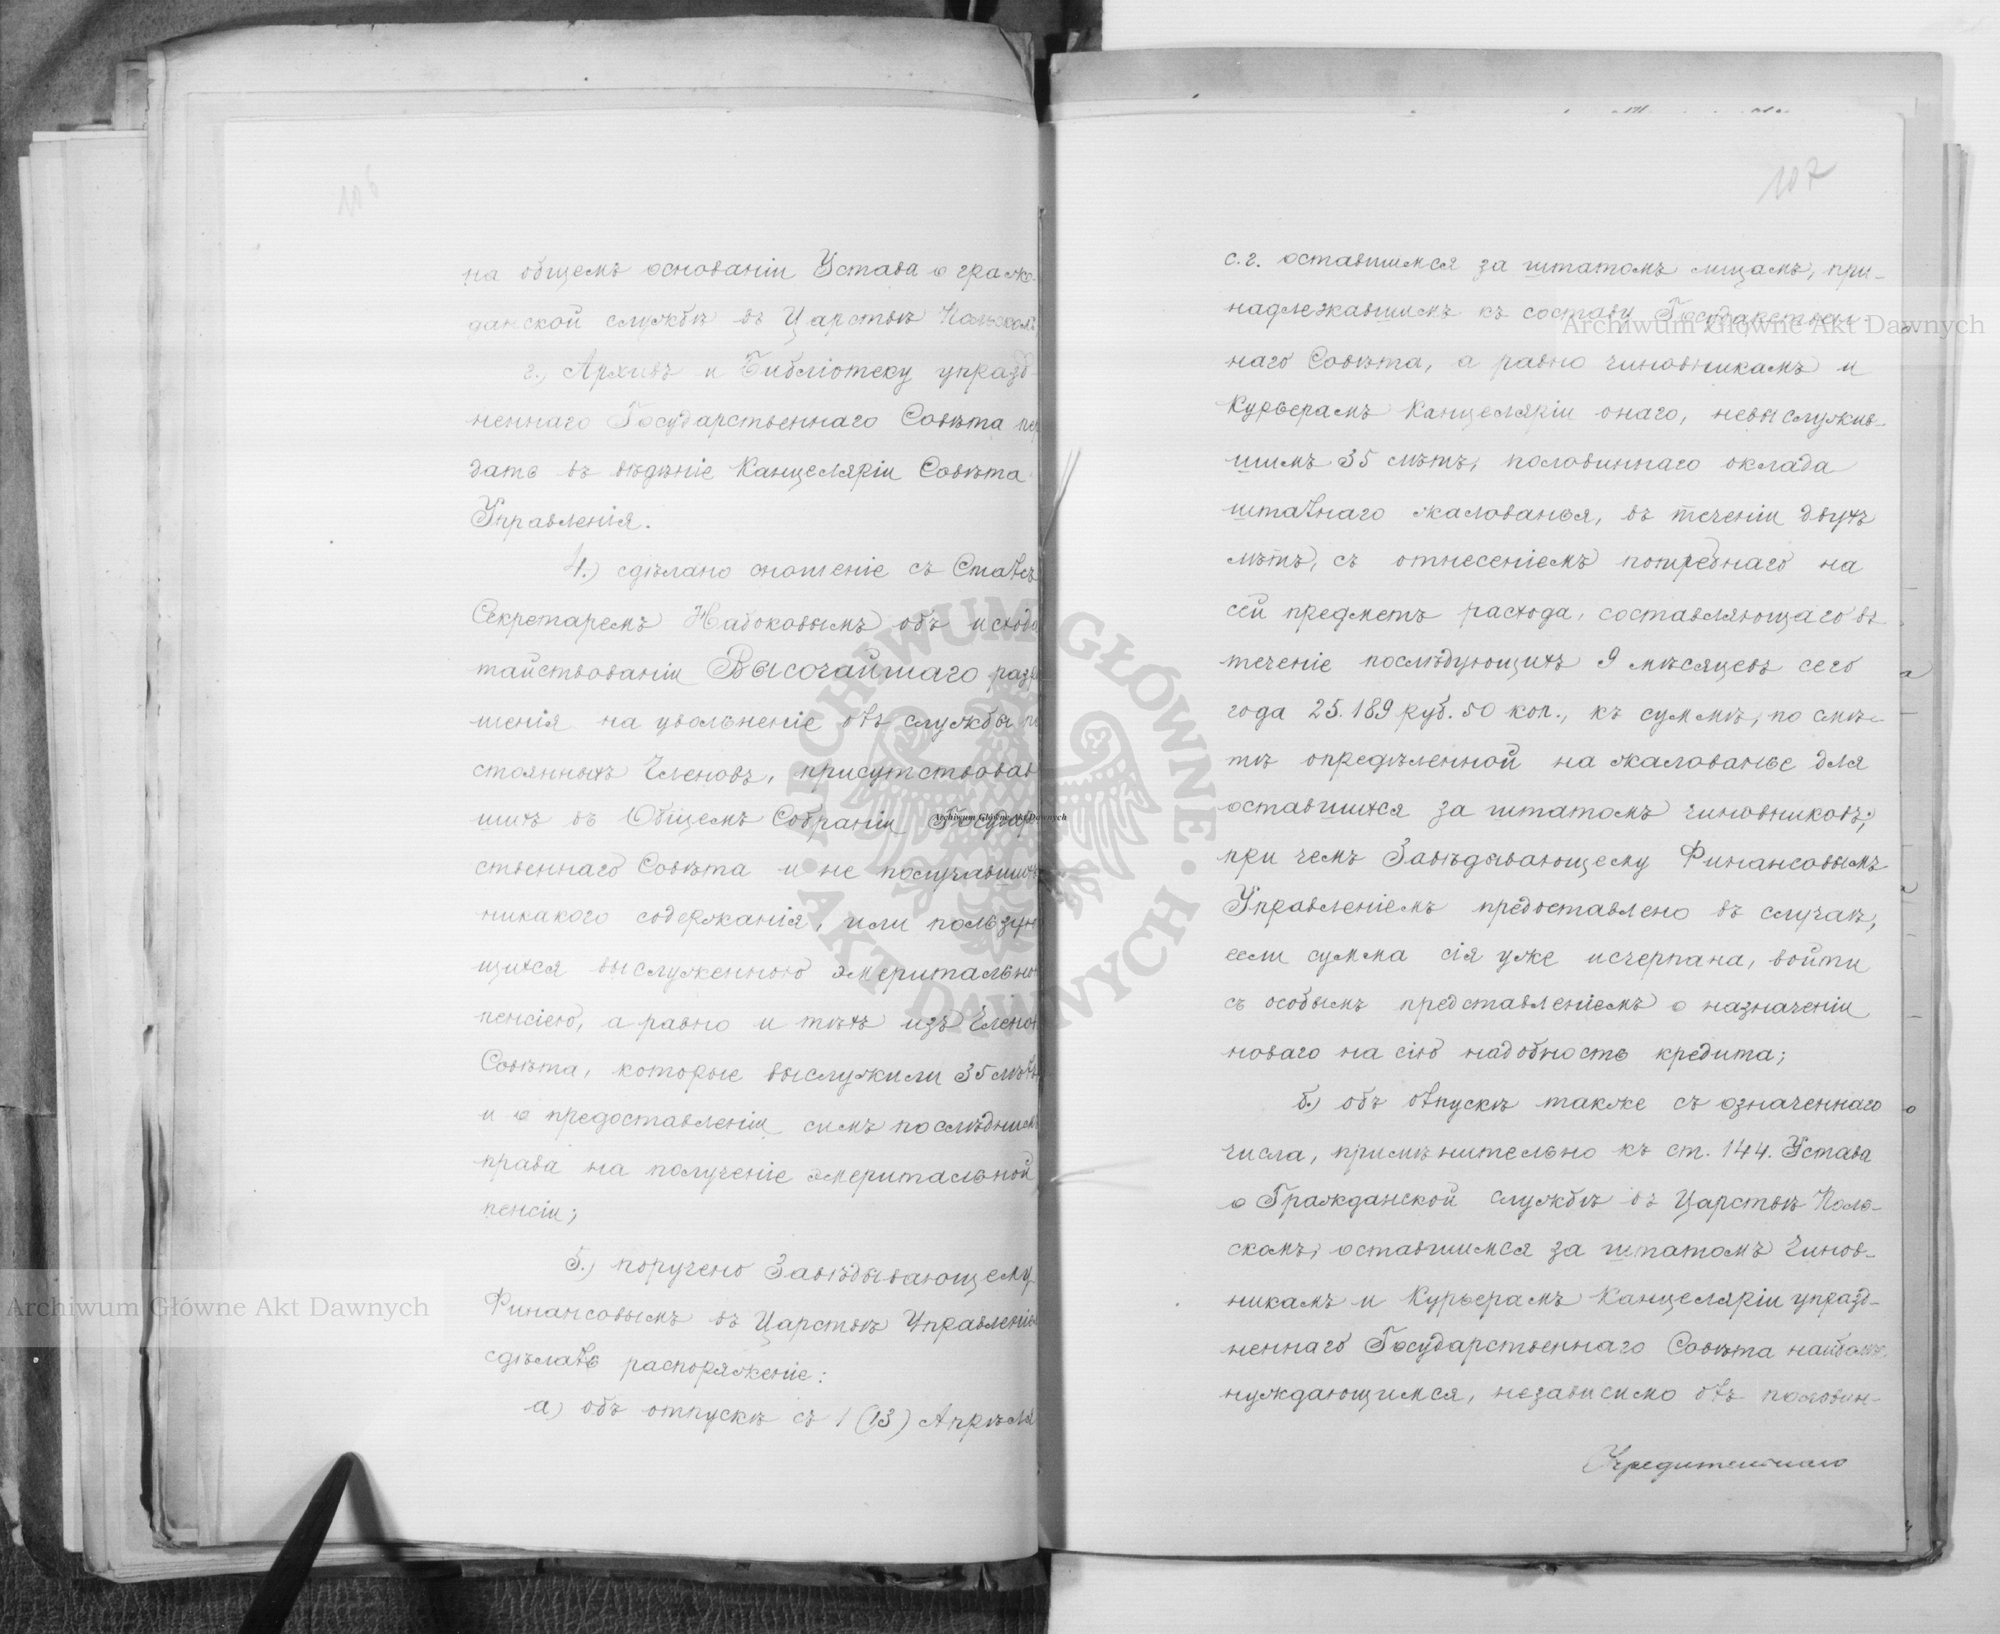 106
на общемъ основаніи Устава о граж-
данской службѣ въ Царствѣ Польскомъ
г.) Архивъ и Библіотеку упразд
неннаго Государственнаго Совѣта пе
дать въ вѣдѣніе Канцеляріи Совѣта
Управленія.
4.) сдѣлано сношеніе съ Статсъ
Секретаремъ Набоковымъ объ исхода
тайствованіи Высочайшаго разрѣ
шенія на увольненіе отъ службы по
стоянныхъ Членовъ, присутствовав
шихъ въ Общемъ Собраніи Государ
ственнаго Совѣта и не получавшихъ
никакого содержанія, или пользую
щихся выслуженною эмеритальною
пенсіею, а равно и тѣхъ изъ Членовъ
Совѣта, которые выслужили 35 лѣтъ,
и о предоставленіи симъ послѣднимъ
права на полученіе эмеритальной
пенсіи;
5.) поручено Завѣдывающему
Финансовымъ въ Царствѣ Управленіемъ
сдѣлать распоряженіе:
а) объ отпускѣ съ 1 (13) Апрѣля
107
с.г. оставшимся за штатомъ лицамъ, при-
надлежавшимъ къ составу Государствен-
наго Совѣта, а равно чиновникамъ и
Курьерамъ Канцеляріи онаго, невыслужив-
шимъ 35 лѣтъ, половиннаго оклада
штатнаго жалованья, въ теченіи двухъ
лѣтъ, съ отнесеніемъ потребнаго на
сей предметъ расхода, составляющаго въ
теченіе послѣдующихъ 9 мѣсяцевъ сего
года 25.189 руб. 50 коп., къ суммѣ, по смѣ-
тѣ опредѣленной на жалованье для
оставшихся за штатомъ чиновниковъ;
при чемъ Завѣдывающему Финансовымъ
Управленіемъ предоставлено въ случаѣ,
если сумма сія уже исчерпана, войти
съ особымъ представленіемъ о назначеніи
новаго на сію надобность кредита;
б.) объ отпускѣ также съ означеннаго
числа, примѣнительно къ ст. 144. Устава
о Гражданской службѣ въ Царствѣ Поль-
скомъ, оставшимся за штатомъ Чинов-
никамъ и Курьерамъ Канцеляріи упразд-
неннаго Государственнаго Совѣта наиболѣе
нуждающимся, независимо отъ половин-
Учредительнаго
Archiwum Główne Akt Dawnych
Archiwum Główne Akt Dawnych
Archiwum Główne Akt Dawnych
ARCHIWUM GŁÓWNE AKT DAWNYCH